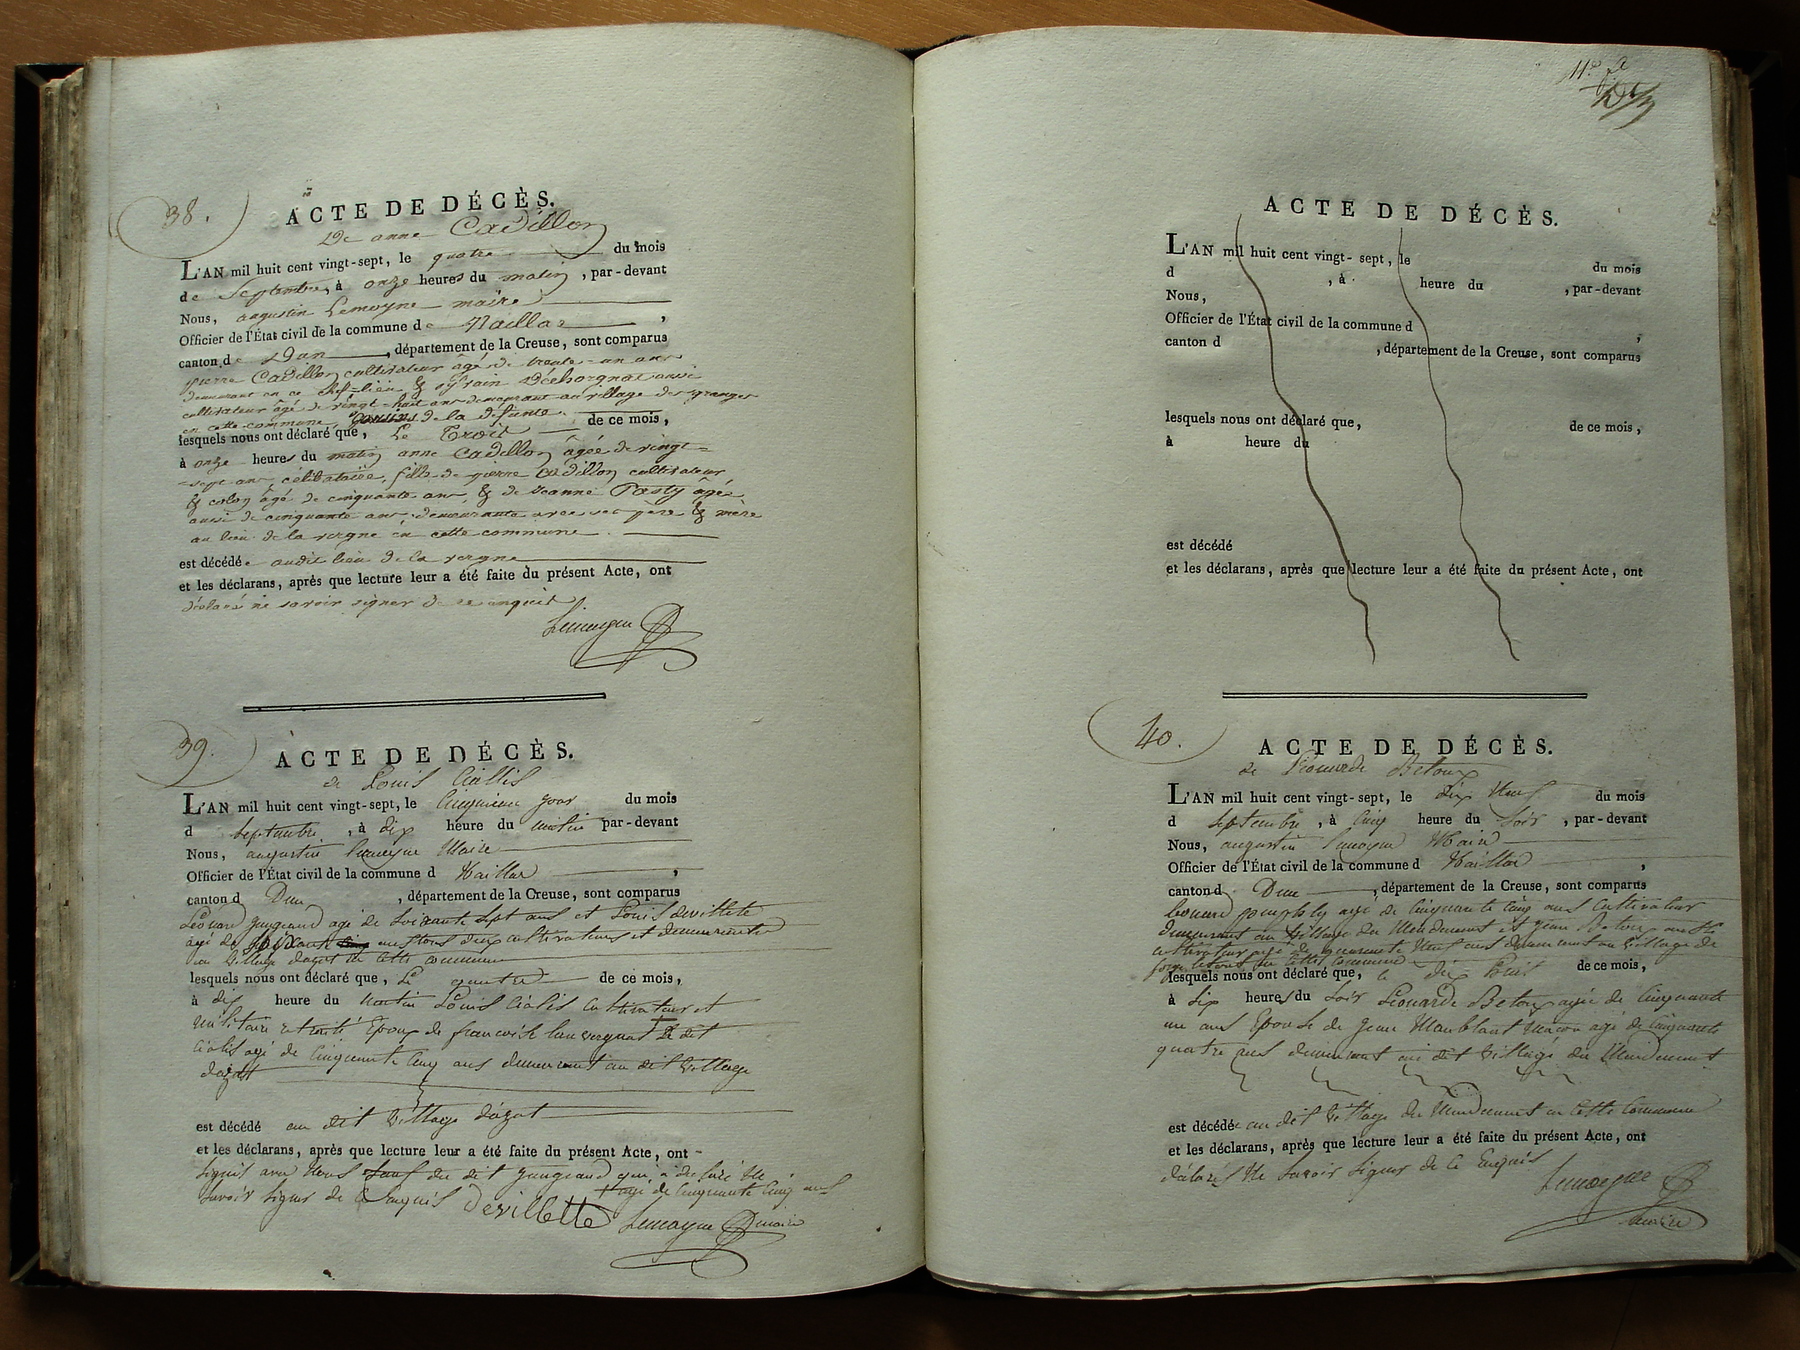 38.
ACTE DE DÉCÈS.
De anne Cadillon
L'AN mil huit cent vingt-sept, le quatre du mois
de Septembre, à onze heures du matin, par-devant
Nous, augustin Lemoyne maire
Officier de l'État civil de la commune de Naillat,
canton de Dun, département de la Creuse, sont comparus
pierre Cadillon cultivateur âgé de trente-un ans
demeurant en ce chef-lieu & sylvain Déchorgnat aussi
cultivateur âgé de vingt-huit ans demeurant au village des granges
en cette commune cousins de la défunte.
lesquels nous ont déclaré que, Le Trois de ce mois,
à onze heures du matin anne Cadillon âgée de vingt-
-sept ans célibataire, fille de pierre Cadillon cultivateur
& colon âgé de cinquante ans, & de Jeanne Pasty âgée
aussi de cinquante ans, demeurante avec ses père & mère
au lieu de la vergne en cette commune.
est décédée audit lieu de la vergne
et les déclarans, après que lecture leur a été faite du présent Acte, ont
déclaré ne savoir signer de ce enquit.
Lemoyne
39.
ACTE DE DÉCÈS.
de Louis Ciallis
L'AN mil huit cent vingt-sept, le Cinquieme jour du mois
d septembre, à dix heure du matin par-devant
Nous, augustin lemoyne Maire
Officier de l'État civil de la commune d Naillat,
canton d Dun, département de la Creuse, sont comparus
Léonard jeugeand agé de soixante sept ans et Louis devillete
agé de soixante ans tous deux cultivateurs et demeurants
au village dazat de cette commune
lesquels nous ont déclaré que, Le quatre de ce mois,
à dix heure du Matin Louis Cialis cultivateur et
militaire retraité Epoux de francoise lauvergnat Le dit
Cialis agé de Cinquante Cinq ans demeurant au dit village
dazat
est décédé au dit village dazat
et les déclarans, après que lecture leur a été faite du présent Acte, ont
signés avec Nous sauf du dit jeugeand qui a déclaré Ne
savoir signer de ce enquis + agé de cinquante Cinq ans
Devillette Lemoyne maire
11.e
ACTE DE DÉCÈS.
L'AN mil huit cent vingt-sept, le du mois
d , à heure du , par-devant
Nous,
Officier de l'État civil de la commune d ,
canton d , département de la Creuse, sont comparus
lesquels nous ont déclaré que, de ce mois,
à heure du
est décédé
et les déclarans, après que lecture leur a été faite du présent Acte, ont
40.
ACTE DE DÉCÈS.
de Léonarde Betoux
L'AN mil huit cent vingt-sept, le dix Neuf du mois
d septembre, à Cinq heure du soir, par-devant
Nous, augustin lemoyne Maire
Officier de l'État civil de la commune d Naillat,
canton d Dun, département de la Creuse, sont comparus
léonard agé de Cinquante Cinq ans Cultivateur
demeurant au village du Mondement et jean Betoux aussi
cultivateur agé de quarante Neuf ans demeurant au village de
en cette commune
lesquels nous ont déclaré que, le dix huit de ce mois,
à six heures du soir Léonarde Betoux agée de Cinquante
un ans Epouse de jean Maublant Macon agé de Cinquante
quatre ans demeurant au dit village du Mondement
est décédée au dit village du Mondement en cette Commune
et les déclarans, après que lecture leur a été faite du présent Acte, ont
déclarés Ne savoir signer de ce Enquis
Lemoyne
maire